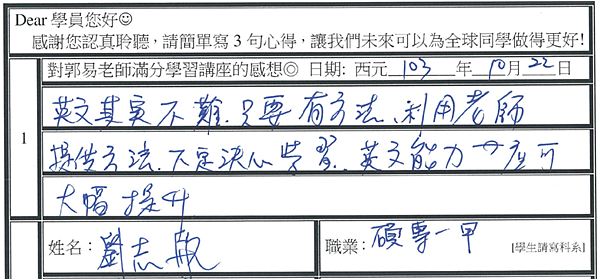 Dear 學員您好☺
感謝您認真聆聽，請簡單寫 3 句心得，讓我們未來可以為全球同學做得更好!
對郭易老師滿分學習講座的感想◎ 日期: 西元 103 年 10 月 22 日
1
英文其實不難.只要有方法、利用老師
提供方法.下定決心學習.英文能力一定應可
大幅提升
姓名： 劉志
職業： 碩專一甲 [學生請寫科系]